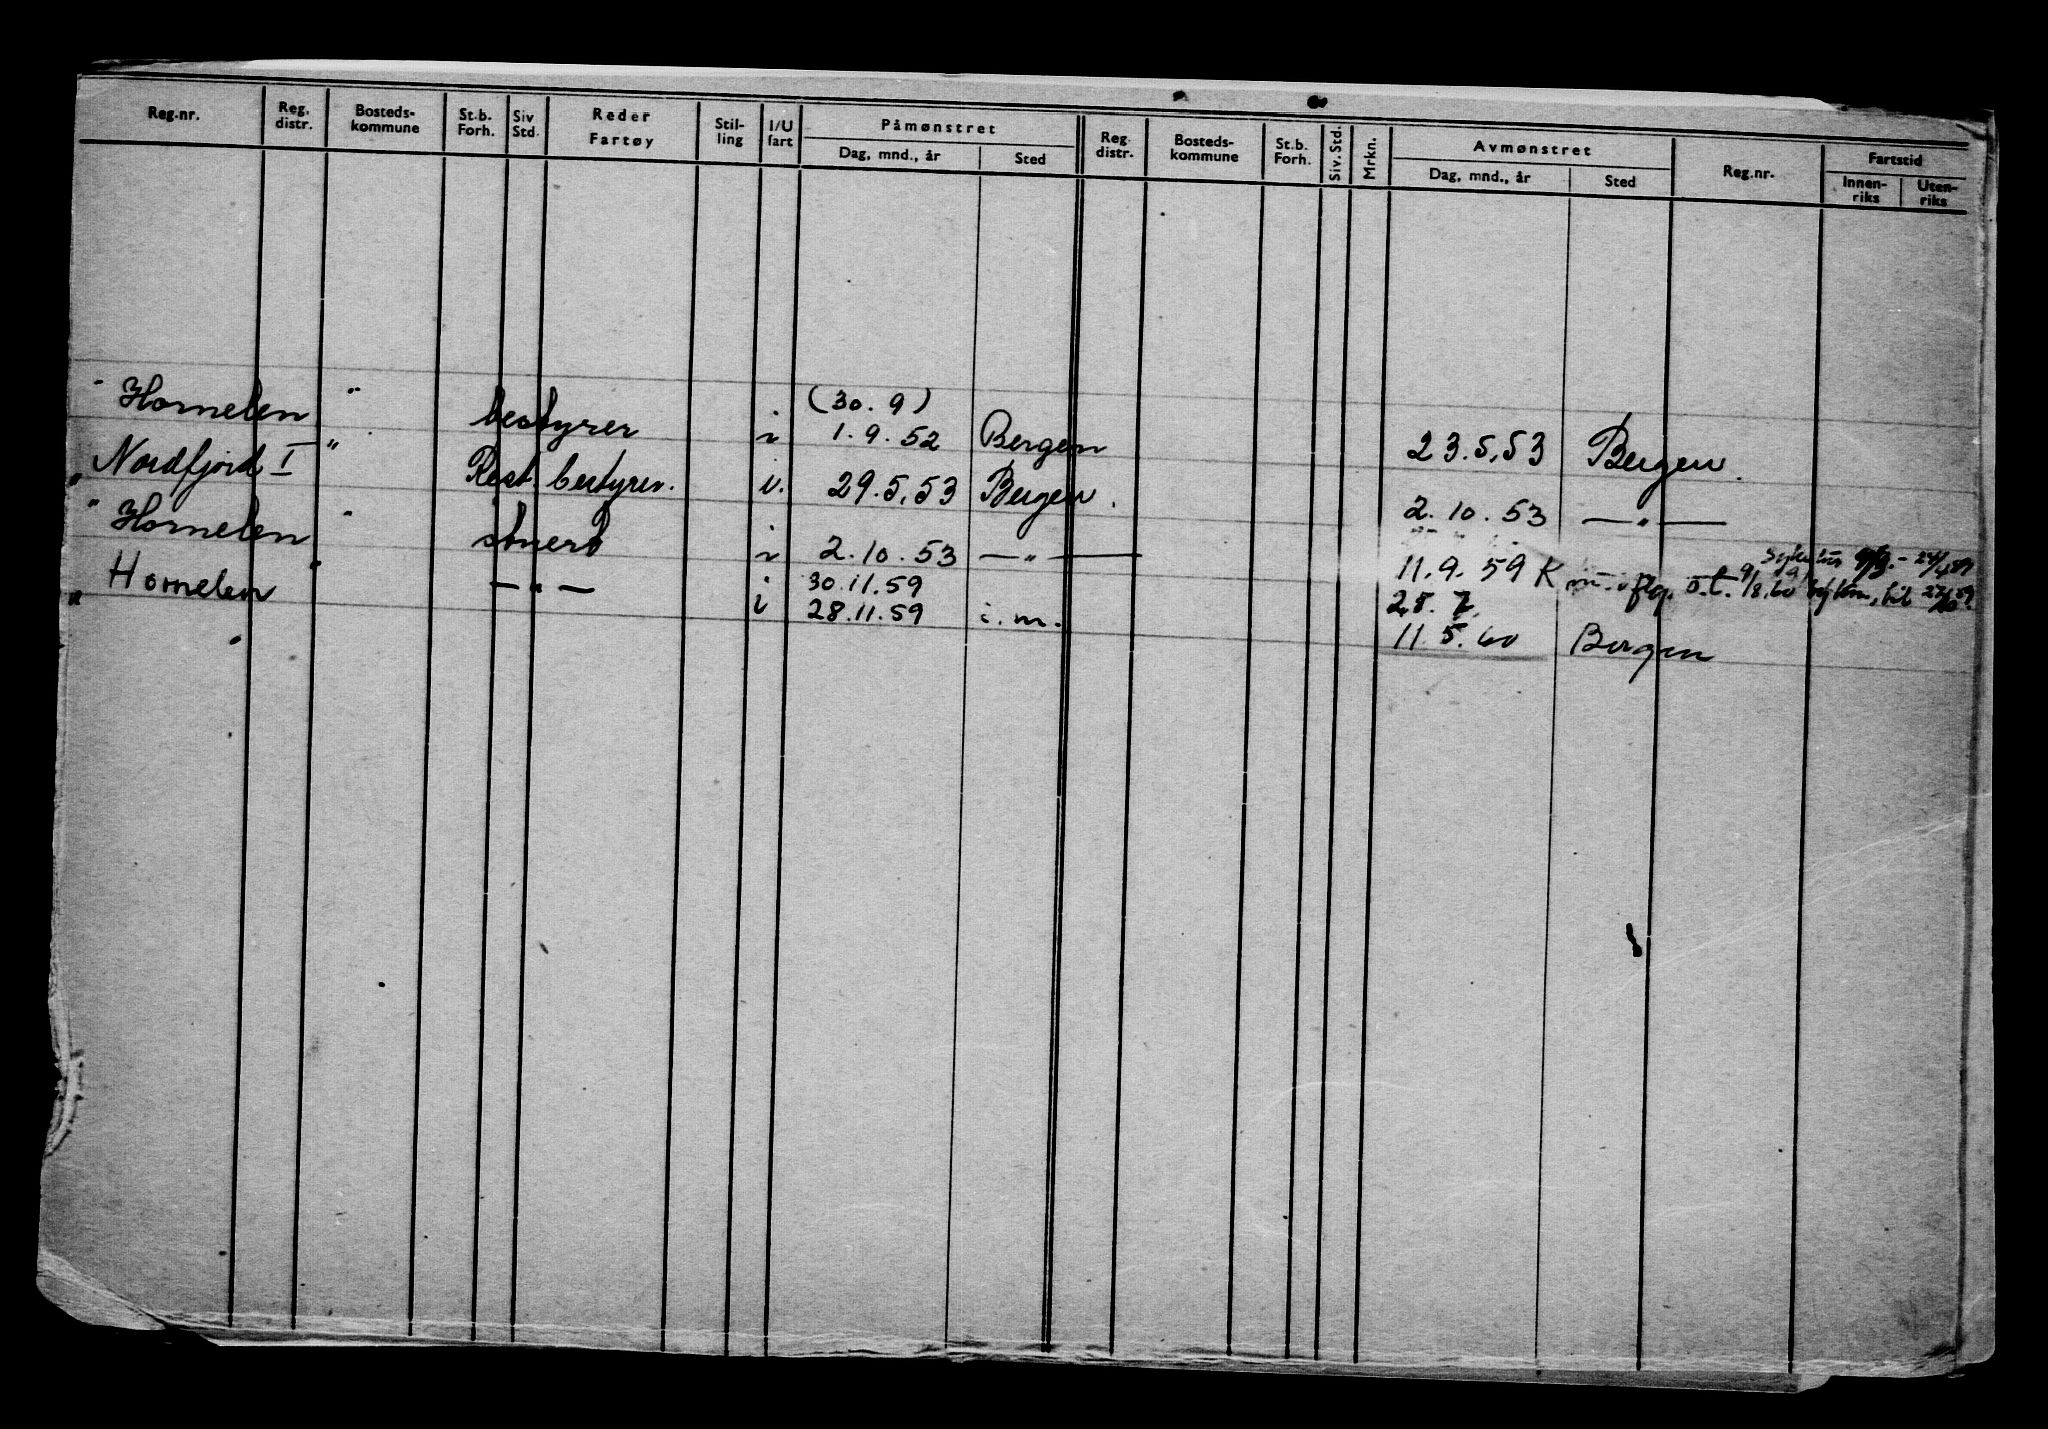 Reg.nr. Reg. distr. Bosteds-kommune St.b. Forh. Siv Std. Reder Fartøy Stil-ling I/U fart Påmønstret Dag, mnd., år Sted Reg. distr. Bosteds-kommune St.b. Forh. Siv. Std. Mrkn. Avmønstret Dag, mnd., år Sted Reg.nr. Fartstid Innen-riks Uten-riks
(30.9)
" Hornelen " bestyrer i 1.9.52 Bergen 23.5.53 Bergen.
" Nordfjord I " Rest. bestyrer. i. 29.5.53 Bergen. 2.10.53 —"—
" Hornelen " stuert i 2.10.53 —"— 11.9.59 K
" Hornelen " —"— i 30.11.59 28.7.
i 28.11.59 i.m. 11.5.60 Bergen